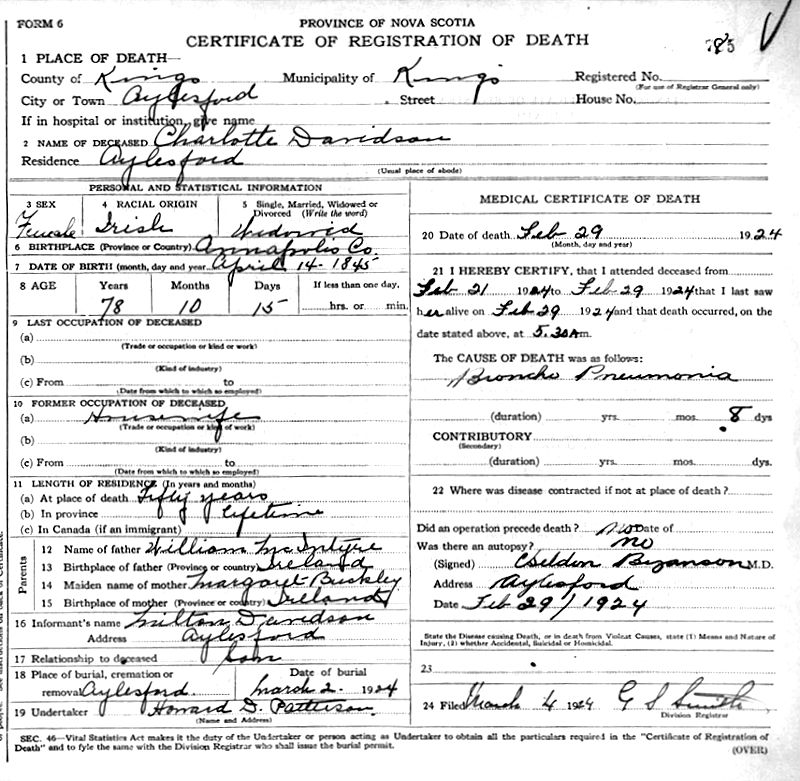 FORM 6
PROVINCE OF NOVA SCOTIA
CERTIFICATE OF REGISTRATION OF DEATH
1 PLACE OF DEATH—
County of Kings Municipality of Kings Registered No.
(For use of Registrar General only)
City or Town Aylesford Street House No.
If in hospital or institution, give name
2 NAME OF DECEASED Charlotte Davidson
Residence Aylesford
(Usual place of abode)
PERSONAL AND STATISTICAL INFORMATION
3 SEX Female
4 RACIAL ORIGIN Irish
5 Single, Married, Widowed or Divorced (Write the word) Widowid
6 BIRTHPLACE (Province or Country) Annapolis Co.
7 DATE OF BIRTH (month, day and year) April 14 - 1845
8 AGE Years Months Days If less than one day,
78 10 15 hrs. or min.
9 LAST OCCUPATION OF DECEASED
(a)
(Trade or occupation or kind or work)
(b)
(Kind of industry)
(c) From to
(Date from which to which so employed)
10 FORMER OCCUPATION OF DECEASED
(a) Housewife
(Trade or occupation or kind of work)
(b)
(Kind of industry)
(c) From to
(Date from which to which so employed)
11 LENGTH OF RESIDENCE (In years and months)
(a) At place of death Fifty years
(b) In province Lifetime
(c) In Canada (if an immigrant)
Parents
12 Name of father William McIntyre
13 Birthplace of father (Province or country) Ireland
14 Maiden name of mother Margaret Buckley
15 Birthplace of mother (Province or country) Ireland
16 Informant's name Milton Davidson
Address Aylesford
17 Relationship to deceased Son
18 Place of burial, cremation or removal Aylesford Date of burial March 2. 1924
19 Undertaker Howard D. Patterson
(Name and Address)
MEDICAL CERTIFICATE OF DEATH
20 Date of death Feb 29 1924
(Month, day and year)
21 I HEREBY CERTIFY, that I attended deceased from
Feb 21 1924 to Feb 29 1924 that I last saw
her alive on Feb 29 1924 and that death occurred, on the
date stated above, at 5.30 Am.
The CAUSE OF DEATH was as follows:
Broncho Pneumonia
(duration) yrs. mos. 8 dys
CONTRIBUTORY
(Secondary)
(duration) yrs. mos. dys.
22 Where was disease contracted if not at place of death?
Did an operation precede death? no Date of
Was there an autopsy? no
(Signed) M.D.
Address Aylesford
Date Feb 29/1924
State the Disease causing Death, or in death from Violent Causes, state (1) Means and Nature of
Injury, (2) whether Accidental, Suicidal or Homicidal.
23
24 Filed March 4 1924 G S Smith
Division Registrar
SEC. 46—Vital Statistics Act makes it the duty of the Undertaker or person acting as Undertaker to obtain all the particulars required in the "Certificate of Registration of
Death" and to fyle the same with the Division Registrar who shall issue the burial permit.
(OVER)